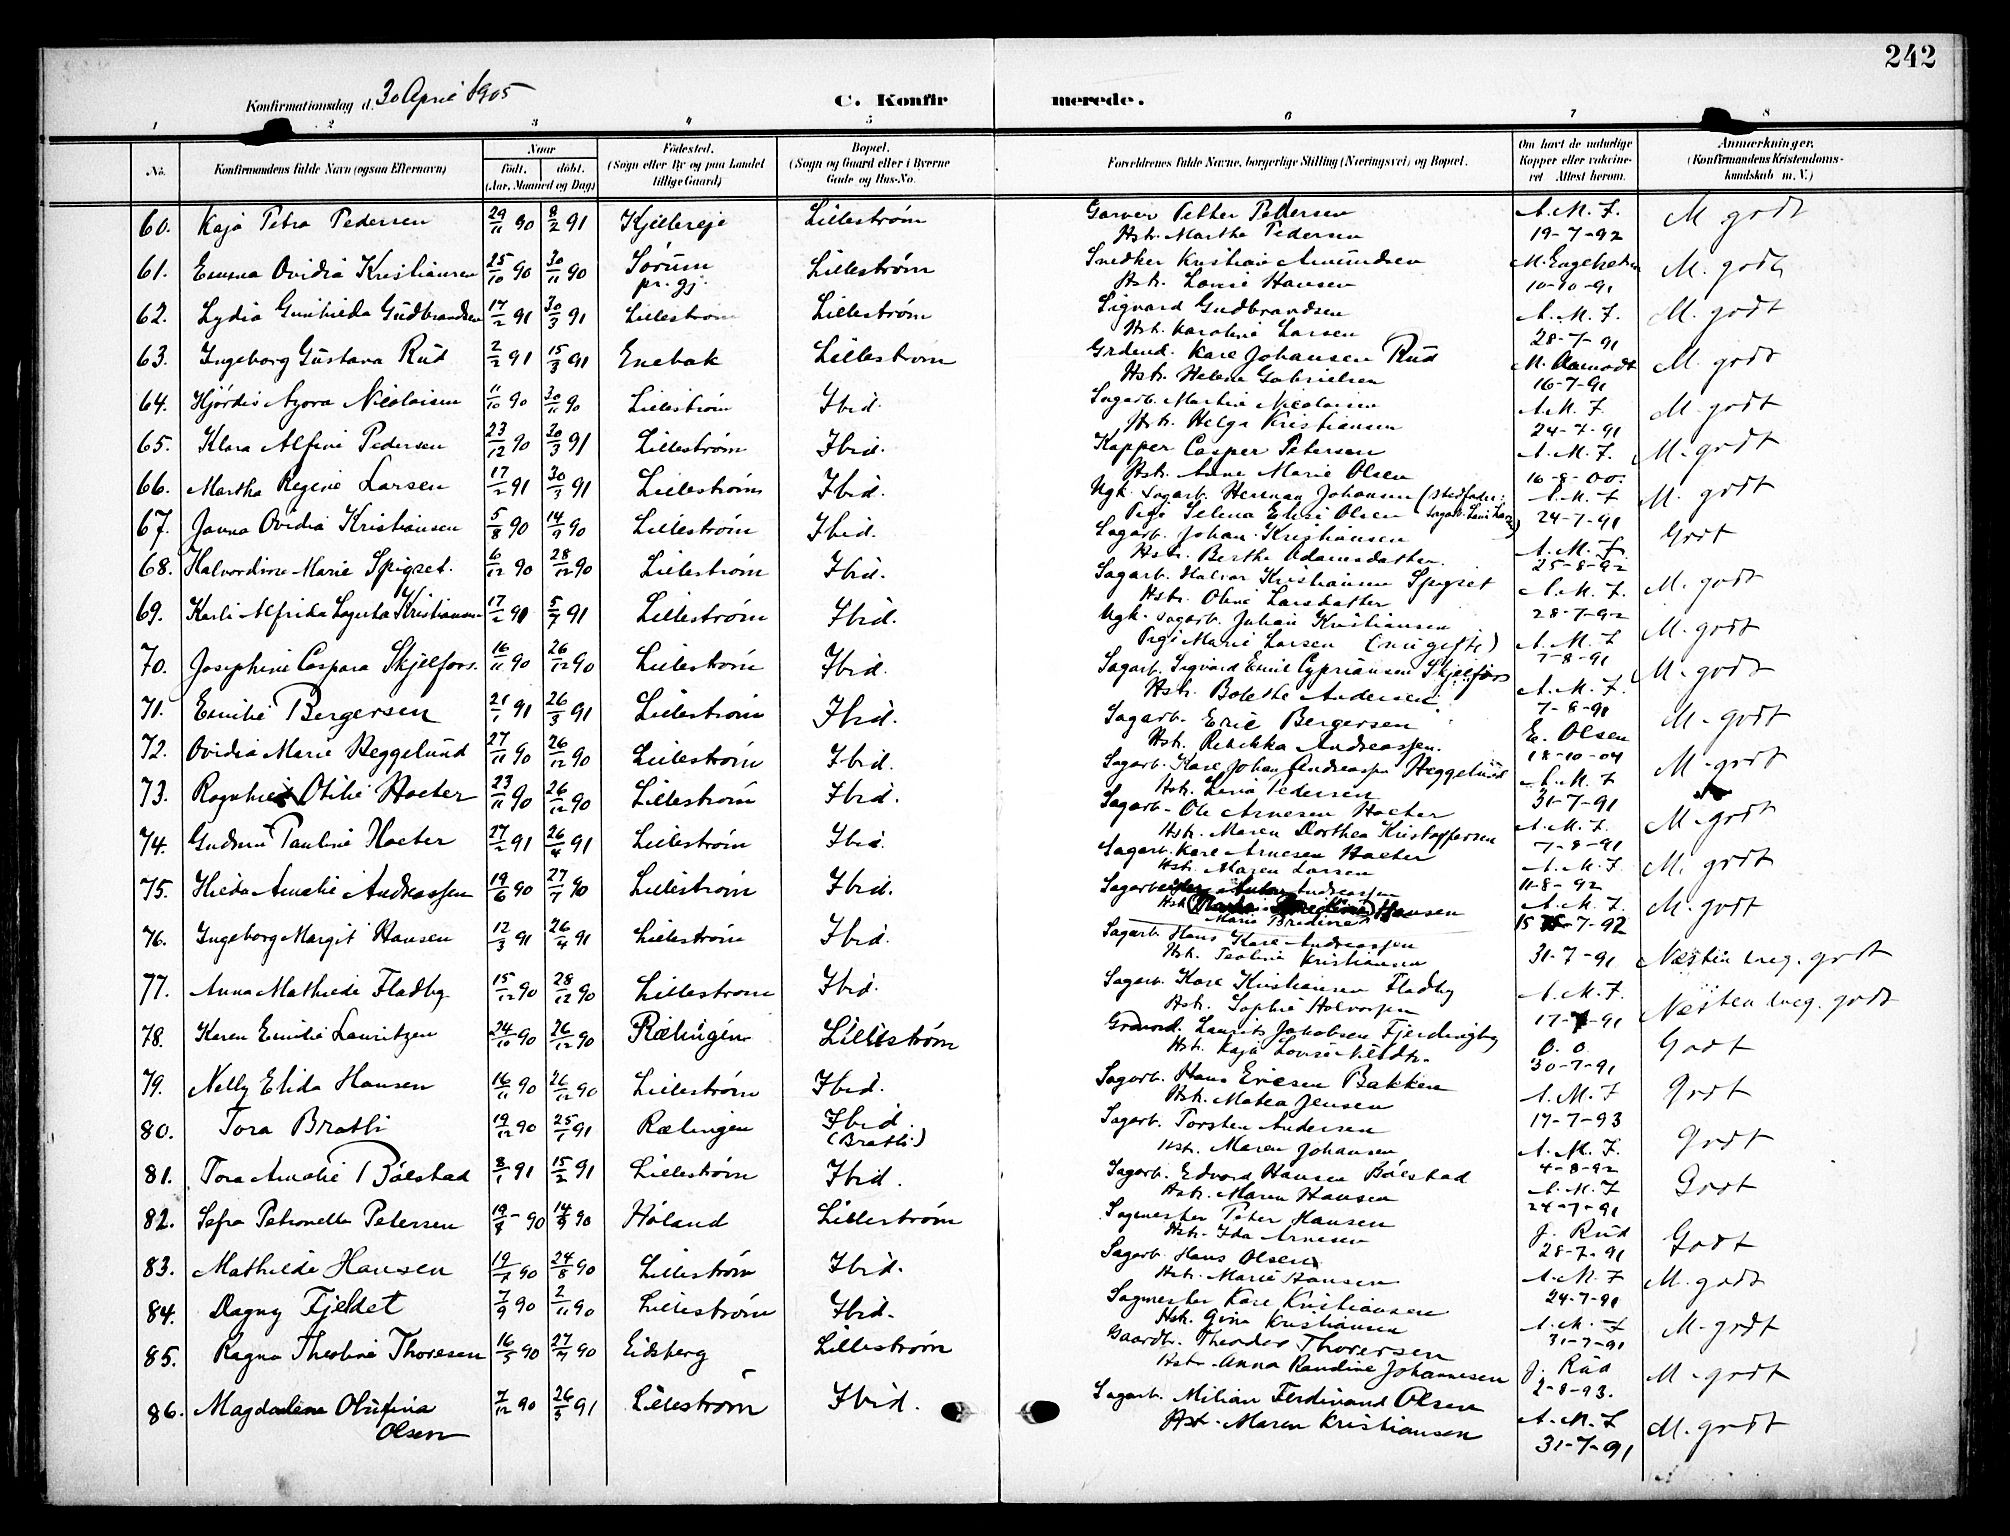 242
Konfirmationsdag d. 30 April 1905
C. Konfirmerede.
1 2 3 4 5 6 7 8
No.
Konfirmandens fulde Navn (ogsaa Efternavn)
Naar
født. døbt.
(Aar, Maaned og Dag)
Fødested.
(Sogn eller By og paa Landet
tillige Gaard)
Bopæl.
(Sogn og Gaard eller i Byerne
Gade og Hus-No.
Forældrenes fulde Navne, borgerlige Stilling (Næringsvei) og Bopæl.
Om havt de naturlige
Kopper eller vakcineret. Attest herom.
Anmærkninger.
(Konfirmandens Kristendomskundskab m. V.)
60. Kaja Petra Pedersen 29/11 90 8/2 91 Lillestrøm Garver Petter Pedersen A. M. F. M. godt
Hstr. Martha Pedersen 19-7-92
61. Emma Ovidia Kristiansen 25/10 90 30/11 90 Sørum Lillestrøm Snedker Kristian Amundsen M. godt
pr. gj. Hstr. Lovise Hansen 10-10-91
62. Lydia Gunhilda Gudbrandsen 17/2 91 30/3 91 Lillestrøm Lillestrøm Sigvard Gudbrandsen A. M. F. M. godt
Hstr. Karoline Larsen 28-7-91
63. Ingeborg Gustava Rud 2/2 91 15/3 91 Enebak Lillestrøm Karl Johansen Rud M. Aamodt M. godt
Hstr. Helene Gabrielsen 16-7-91
64. Hjørdis Azora Nicolaisen 11/10 90 30/11 90 Lillestrøm Ibid. Sagarb. Martin Nicolaisen A. M. F. M. godt
Hstr. Helga Kristiansen 24-7-91
65. Klara Alfine Pedersen 23/12 90 30/3 91 Lillestrøm Ibid. Kapper Casper Petersen A. M. F. M. godt
Hstr. Anne Marie Olsen 16-8-00.
66. Martha Regine Larsen 17/2 91 30/3 91 Lillestrøm Ibid. Ugk. Sagarb. Herman Johansen (Stedfader: A. M. F. M. godt
Pige Selma Elise Olsen 24-7-91
67. Janna Ovidia Kristiansen 5/8 90 14/9 90 Lillestrøm Ibid. Sagarb. Johan Kristiansen A. M. F. Godt
Hstr. Berthe Adamsdatter. 25-8-92
68. Halvordine Marie Spigset. 6/12 90 28/12 90 Lillestrøm Ibid. Sagarb. Halvor Kristiansen Spigset A. M. F. M. godt
Hstr. Oline Larsdatter 28-7-92
69. Karli Alfrida Kristiansen 17/2 91 5/7 91 Lillestrøm Ibid. Ugk. Sagarb. Julian Kristiansen A. M. F. M. godt
Pige Marie Larsen (nu gift) 7-8-91
70. Josephine Caspara Skjelfors. 16/11 90 26/12 90 Lillestrøm Ibid. Sagarb. Sigvard Emil Cypriansen Skjelfors A. M. F. M. godt
Hstr. Bolethe Andersen 7-8-91
71. Emilie Bergersen 21/1 91 26/3 91 Lillestrøm Ibid. Sagarb. Eric Bergersen E. Olsen M. godt
Hstr. Rebekka Andreassen. 18-10-04
72. Ovidia Marie Heggelund 27/11 90 26/12 90 Lillestrøm Ibid. Sagarb. Karl Johan Andreassen Heggelund A. M. F. M. godt
Hstr. Lina Pedersen 31-7-91
73. Ragnhild Otilie Haeter 23/11 90 26/12 90 Lillestrøm Ibid. Sagarb. Ole Arnesen Haeter A. M. F. M. godt
Hstr. Maren Dorthea Kristoffersen 7-8-91
74. Gudrun Pauline Haeter 27/2 91 26/4 91 Lillestrøm Ibid. Sagarb. Karl Arnesen Haeter A. M. F. M. godt
Hstr. Maren Larsen 11-8-92
75. Hilda Amalie Andreassen 19/6 90 27/7 90 Lillestrøm Ibid. Sagarbeider Anton Andreassen A. M. F. M. godt
Hstr. Hansen 15-7-92
76. Ingeborg Margit Hansen 12/3 91 26/4 91 Lillestrøm Ibid. Sagarb. Hans Karl Andreassen Næsten meg. godt
Hstr. Teoline Kristiansen 31-7-91
77. Anna Mathilde Fladby 15/12 90 28/12 90 Lillestrøm Ibid. Sagarb. Karl Kristiansen Fladby A. M. F. Næsten meg. godt
Hstr. Sophie Halvorsen 17-7-91
78. Karen Emilie Lauritzen 24/10 90 26/12 90 Rælingen Lillestrøm Laurits Jakobsen Fjerdingby O. O. Godt
Hstr. Kaja Lovise 30-7-91
79. Nelly Elida Hansen 16/11 90 26/12 90 Lillestrøm Ibid. Sagarb. Hans Ericsen Bakken A. M. F Godt
Hstr. Matea Jensen 17-7-93
80. Tora Bratli 19/12 90 25/1 91 Rælingen Ibid. Sagarb. Torsten Andersen A. M. F. Godt
(Bratli) Hstr. Maren Johansen 4-8-92
81. Tora Amalie Bølestad 8/1 91 15/2 91 Lillestrøm Ibid. Sagarb. Edvard Hansen Bølestad A. M. F Godt
Hstr. Maren Hansen 24-7-91
82. Sefra Petronella Petersen 14/9 90 Høland Lillestrøm Sagmester Peter Hansen J. Rud Godt
Hstr. Ida Arnesen 28-7-91
83. Mathilde Hansen 19/7 90 24/8 90 Lillestrøm Ibid. Sagarb. Hans Olsen A. M. F M. godt
Hstr. Marie Hansen 24-7-91
84. Dagny Fjeldet 7/9 90 2/11 90 Lillestrøm Ibid. Sagmester Karl Kristiansen A. M. F M. godt
Hstr. Gina Kristiansen 31-7-91
85. Ragna Theoline Thoresen 16/3 90 27/4 90 Eidsberg Lillestrøm Gaardbr. Theodor Thoresen J. Rud M. godt
Hstr. Anna Randine Johannesen 2-8-93.
86. Magdalene Olufina 7/12 90 26/3 91 Lillestrøm Ibid. Sagarb. Milian Ferdinand Olsen A. M. F M. godt
Olsen Hstr. Maren Kristiansen 31-7-91